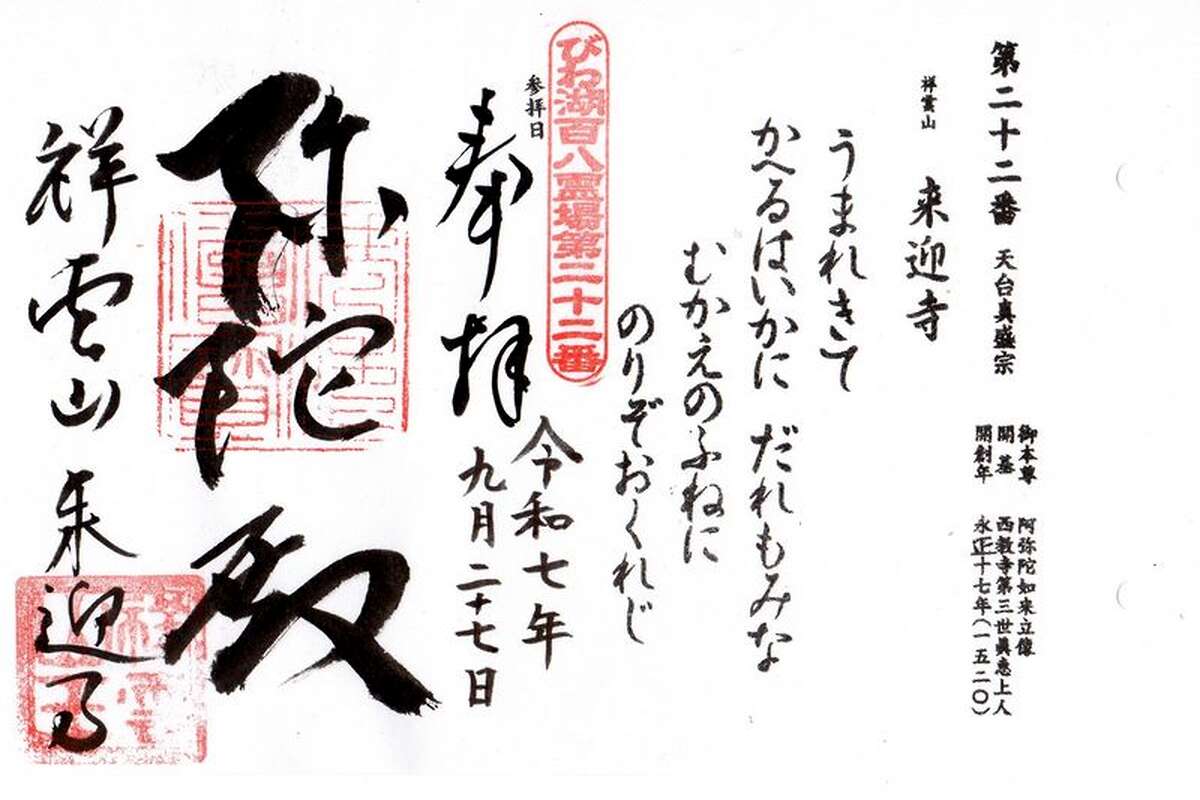 第二十二番 天台真盛宗
御本尊 阿弥陀如来立像
開基 西教寺第三世眞恵上人
開創年 永正十七年(一五二〇)
祥雲山 来迎寺
うまれきて
かへるはいかに だれもみな
むかえのふねに
のりぞおくれじ
びわ湖百八霊場第二十二番
参拝日
奉拝
令和七年
九月二十七日
弥陀殿
祥雲山来迎寺